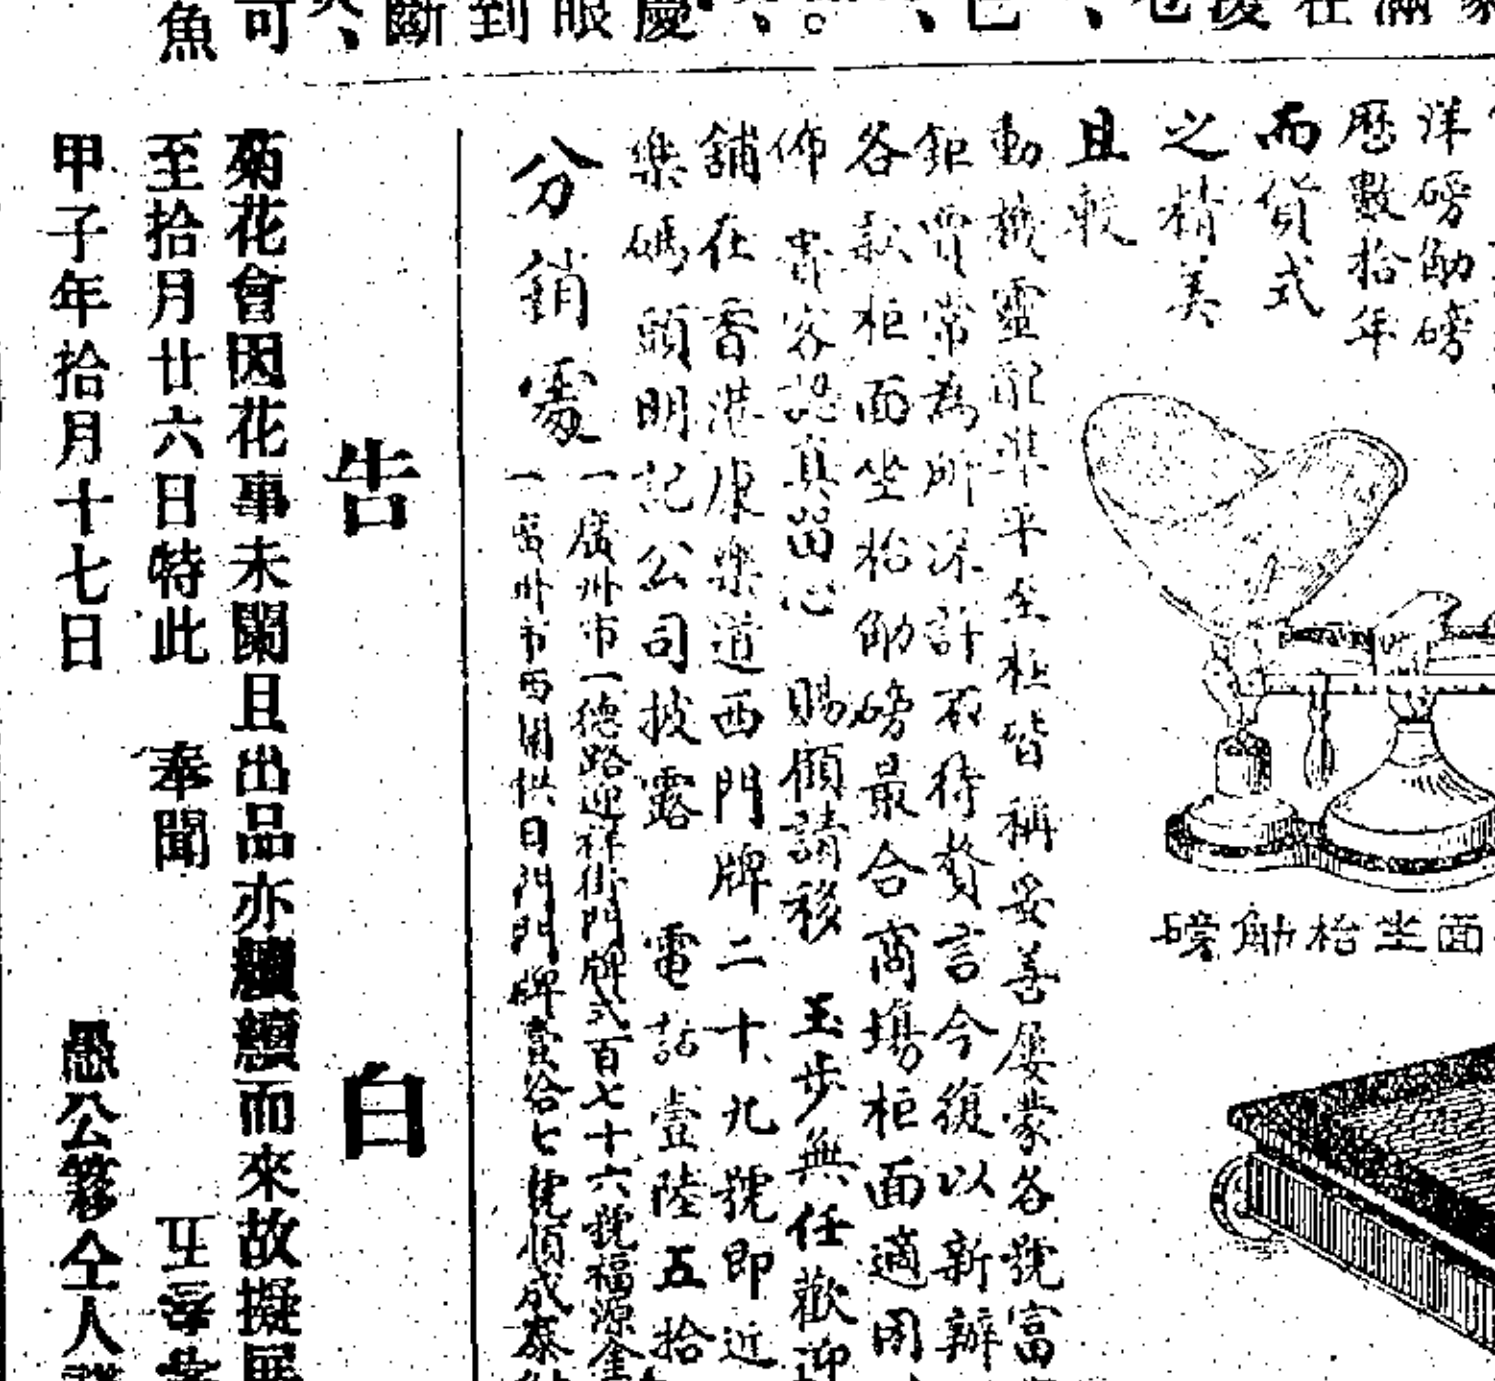 洋磅觔磅
歷數拾年
而貨式
之精美
且較
動機靈配準平至柱皆稱妥善屢蒙各號富
鉅賈常為所深計不待贅言今復以新辦
各款柜面坐枱觔磅最合商塲柜面適用
佈 貴客認真留心 賜顧請移 玉步無任歡迎
舖在香港康樂道西門牌二十九號即近
樂碼頭明記公司披露 電話壹陸五拾
分銷處
一廣州市一德路迎祥街門牌弍百七十六號福源金
一廣州市西關拱日門門牌壹拾七號順成泰
面坐枱觔磅
告白
菊花會因花事未闌且出品亦續續而來故擬展
至拾月廿六日特此 奉聞
甲子年拾月十七日 愚公簃仝人謹